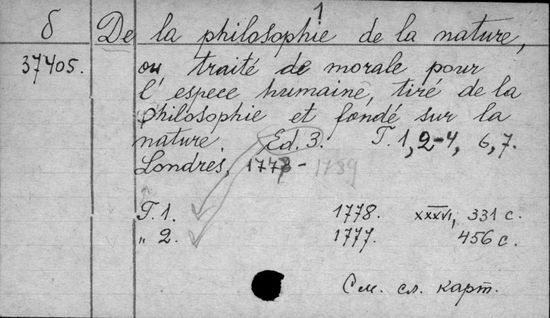 1
б De la philosophie de la nature,
37405. ou traité de morale pour
l'espece humaine, tiré de la
philosophie et fondé sur la
nature. Ed. 3. T. 1, 2-4, 6, 7.
Londres, 1777- 1789
T. 1. 1778. XXXVI, 331 с.
" 2. 1777. 456 с.
См. сл. карт.